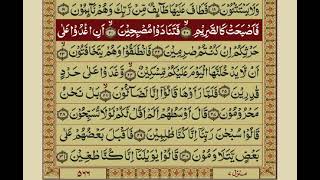 وَلَا يَسْتَثْنُوْنَ ﴿۱۸﴾ فَطَافَ عَلَيْهَا طَآئِفٌ مِّنْ رَّبِّكَ وَهُمْ نَآئِمُوْنَ ﴿۱۹﴾
فَاَصْبَحَتْ كَالصَّرِيْمِ ﴿۲۰﴾ فَتَنَادَوْا مُصْبِحِيْنَ ﴿۲۱﴾ اَنِ اغْدُوْا عَلٰى
حَرْثِكُمْ اِنْ كُنْتُمْ صٰرِمِيْنَ ﴿۲۲﴾ فَانْطَلَقُوْا وَهُمْ يَتَخَافَتُوْنَ ﴿۲۳﴾
اَنْ لَّا يَدْخُلَنَّهَا الْيَوْمَ عَلَيْكُمْ مِّسْكِيْنٌ ﴿۲۴﴾ وَّغَدَوْا عَلٰى حَرْدٍ
قٰدِرِيْنَ ﴿۲۵﴾ فَلَمَّا رَاَوْهَا قَالُوْٓا اِنَّا لَضَآلُّوْنَ ﴿۲۶﴾ بَلْ نَحْنُ
مَحْرُوْمُوْنَ ﴿۲۷﴾ قَالَ اَوْسَطُهُمْ اَلَمْ اَقُلْ لَّكُمْ لَوْلَا تُسَبِّحُوْنَ ﴿۲۸﴾
قَالُوْا سُبْحٰنَ رَبِّنَآ اِنَّا كُنَّا ظٰلِمِيْنَ ﴿۲۹﴾ فَاَقْبَلَ بَعْضُهُمْ عَلٰى
بَعْضٍ يَّتَلَاوَمُوْنَ ﴿۳۰﴾ قَالُوْا يٰوَيْلَنَآ اِنَّا كُنَّا طٰغِيْنَ ﴿۳۱﴾
منزل ۷
۵۶۶